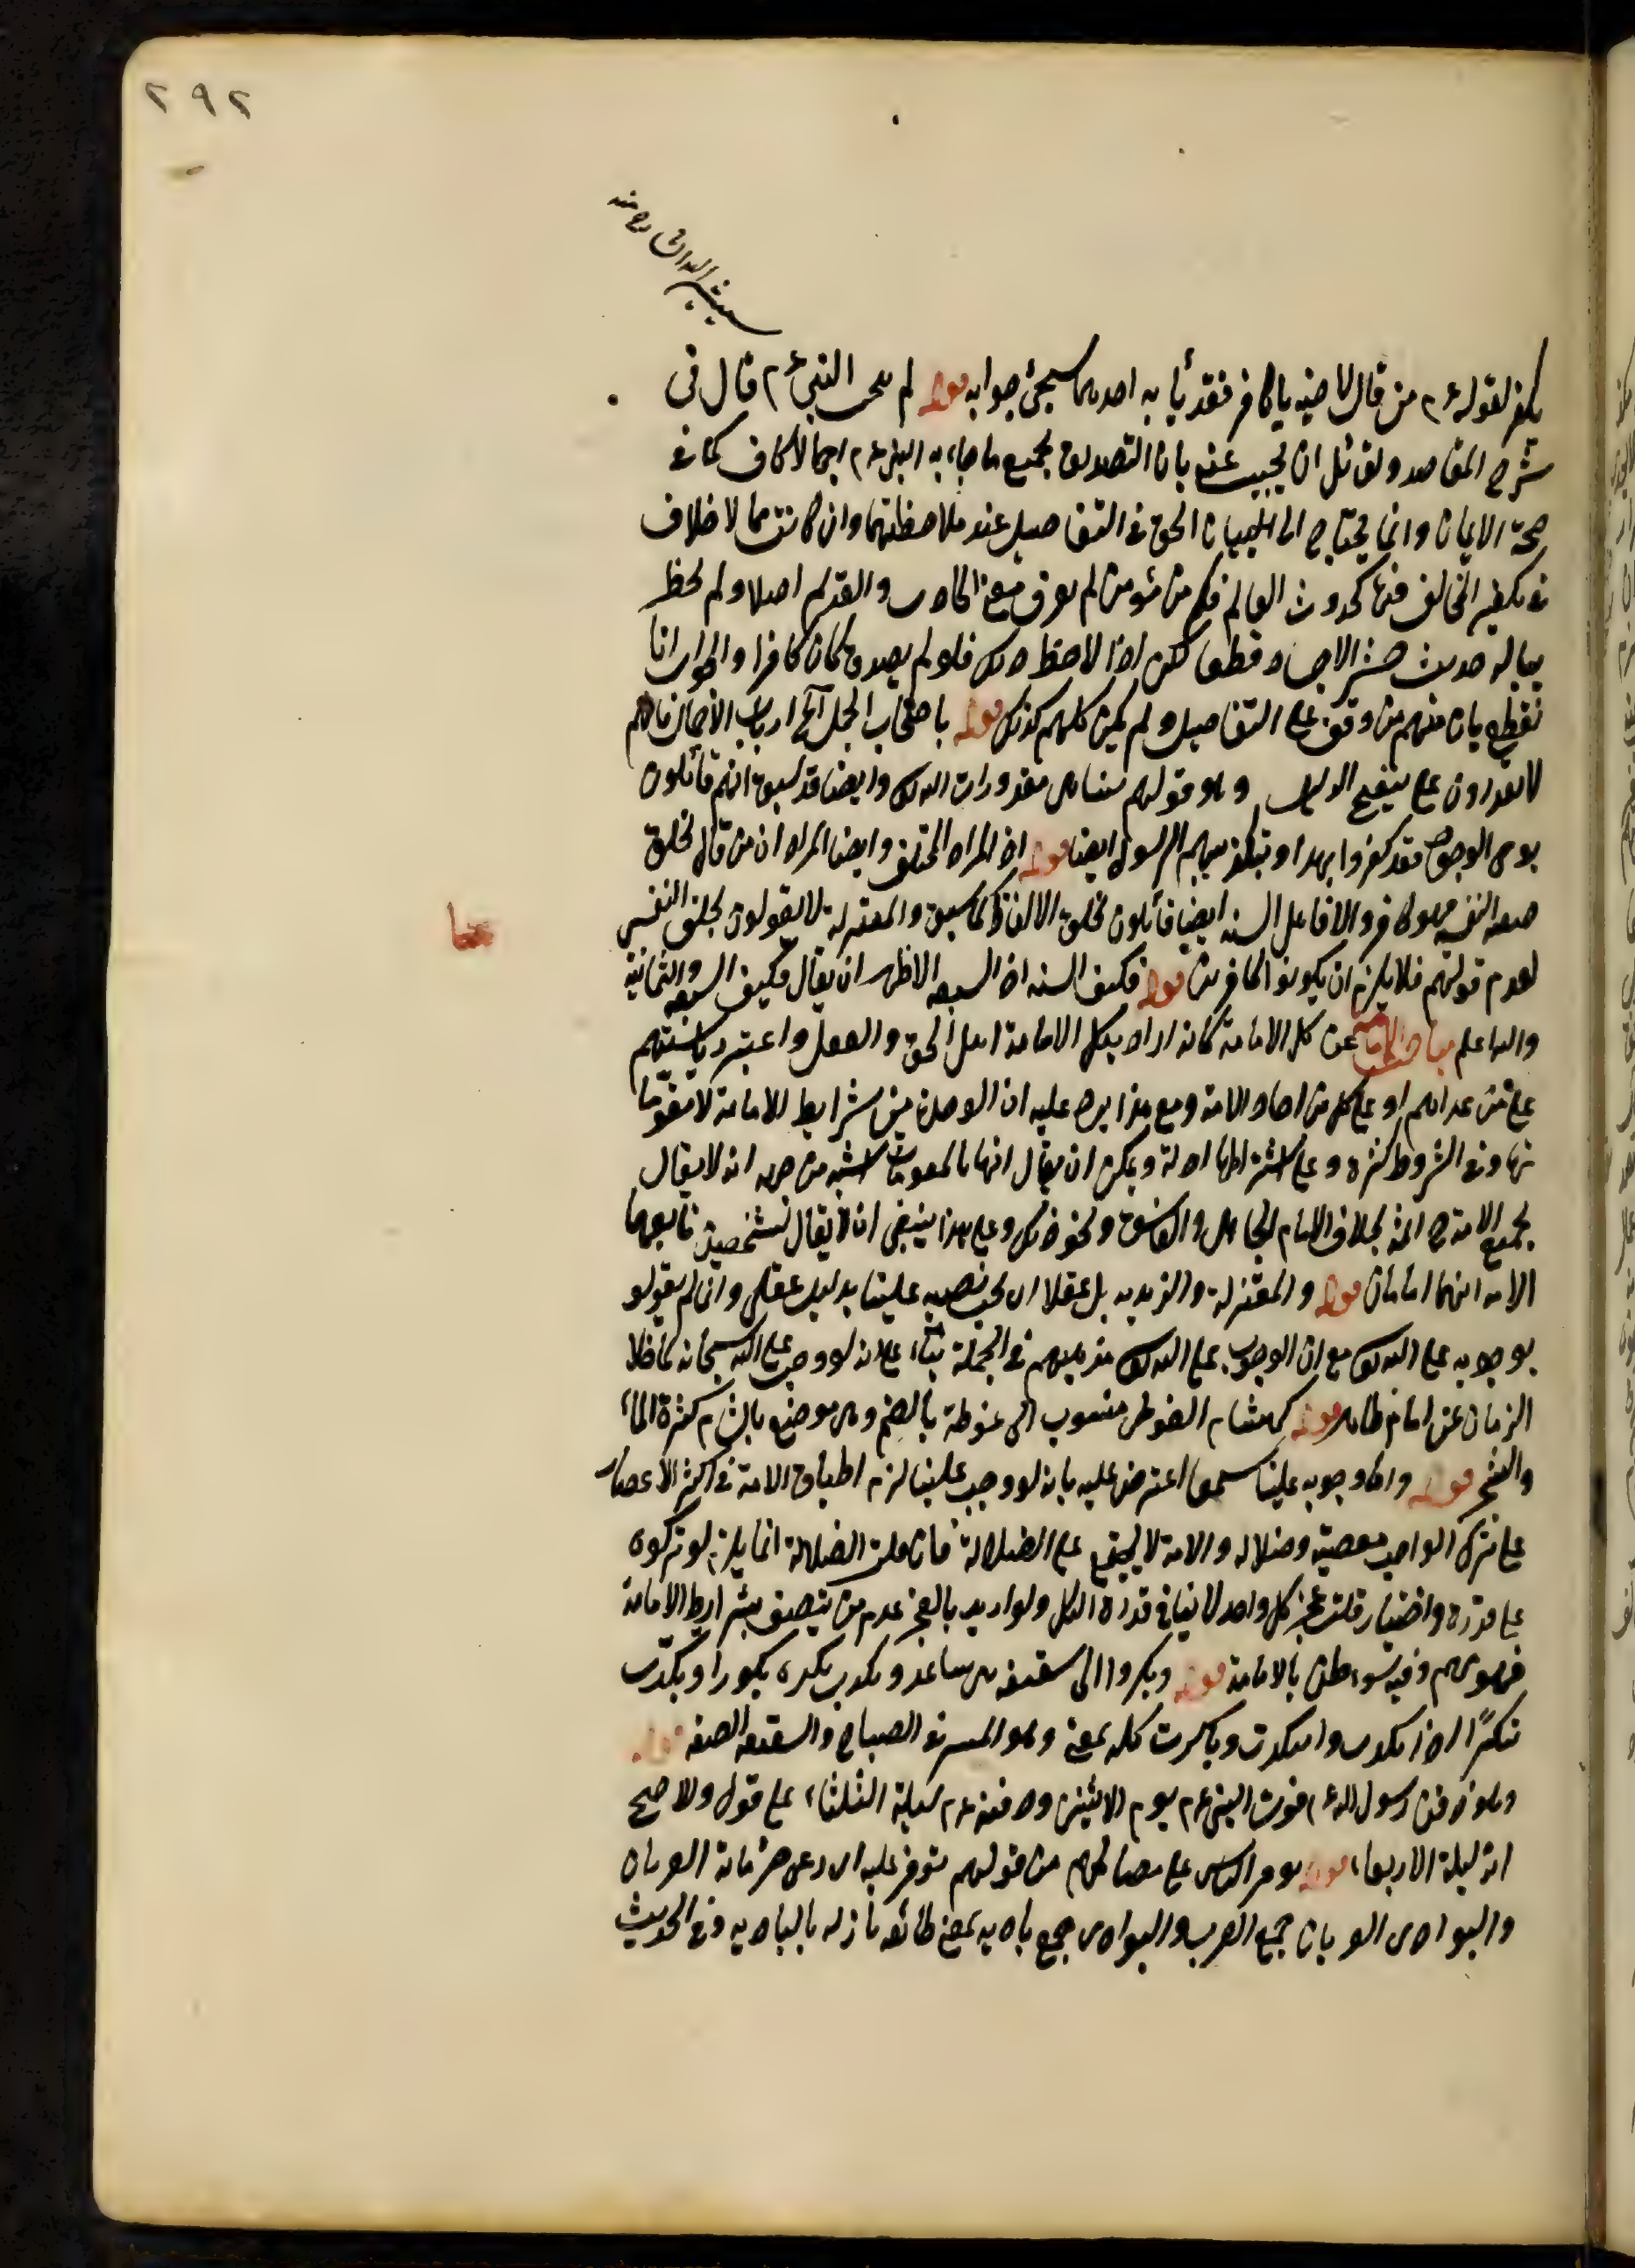 ٢٩٢
يكفر لقوله ءم من قال لاخيه يا كافر فقد بأ به احدهما سيجئ جوابه قوله لم يبحث النبي ءم قال في
شرح المقاصد ولقائل ان يجيب عنه بان التصديق بجميع ما جاء به النبي ءم اجمالا كاف كما في
صحة الايمان وانما يحتاج الى البيان الحق في التفاصيل عند ملاحظتها وان كانت مما لا خلاف
في تكفير المخالف فيها كحدوث العالم فكم من مؤمن لم يعرف معنى الحادث والقديم اصلا ولم يخطر
بباله حديث حشر الاجساد قطعا لكن اذا لاحظ ذلك فلو لم يصدق كان كافرا والجواب انا
نقطع بان منهم من وقف على التفاصيل ولم يكن كلهم كذلك قوله باصحاب الجمل آلخ ارباب الايمان فانهم
لا يقدرون على تنقيح الدليل وهو قولهم بتناهى مقدورات الله تعالى وايضا قد سبق انهم قائلون
الرسول ايضا قوله اذ المراد المختلق وايضا المراد ان من قال بخلق
السنة ايضا قائلون بخلق الالفاظ كما سبق والمعتزلة لا يقولون بخلق النفسى
لعدم قولهم فلا يلزم ان يكونوا كافرين قوله فكيف الستة اذ السبعة الاظهر ان يقال فكيف السبعة والثمانية
والله اعلم مباحث الامامة عن كل الامامة كانه اراد بكل الامامة اهل الحق والعقل واعتبر رياستهم
على من عداهم او على كل من احاد الامة ومع هذا يرد عليه ان الوحدة من شرايط الامامة لا مقوما
تها وفى الشروط كثرة وعلى اشتراطها ادلة ويمكن ان يقال انها بالمقومات اشبه من حيث انه لا يقال
لجميع الامة ائمة بخلاف الامام الجاهل والفاسق ونحو ذلك وعلى هذا ينبغى ان لا يقال لشخصين تابعهما
الامة انهما امامان قوله والمعتزلة والزيدية بل عقلا اى يجب نصبه علينا بدليل عقلى وان لم يقولو
بوجوبه على الله تعالى مع ان الوجوب على الله تعالى مذهبهم فى الجملة بناء على انه لو وجب على الله سبحانه لما خلا
الزمان عن امام ظاهر قوله كهشام الفوطى منسوب الى غوطة بالضم وهى موضع بالشام كثيرة الماء
والشجر قوله واما وجوبه علينا سمعا اعترض عليه بانه لو وجب علينا لزم اطباق الامة فى اكثر الاعصار
على ترك الواجب معصية وضلالة والامة لا يجتمع على الضلالة فان قلت الضلالة انما يلزم لو تركوه
على قدرة واختيار قلت عجز كل واحد لا ينافى قدرة الكل ولو اريد بالعجز عدم من يتصف بشرايط الامامة
وفيه سوء ظن بالامامة قوله وبكروا الى سقيفة بنى ساعدة بكرت بكرة بكورا وبكّرت
تبكيرًا وابتكرت وباكرت كله بمعنى وهو السير فى الصباح والسقيفة الصفة قوله
وهو دفن رسول الله ءم فوت النبي ءم يوم الاثنين ودفنه ءم ليلة الثلثاء على قول والاصح
انه ليلة الاربعاء قوله على مصالحهم من قولهم توفر عليه اى رعى حرمانه العربان
والبوادى العربان جمع العرب والبوادى جمع بادية بمعنى طائفة نازلة بالبادية وفى الحديث